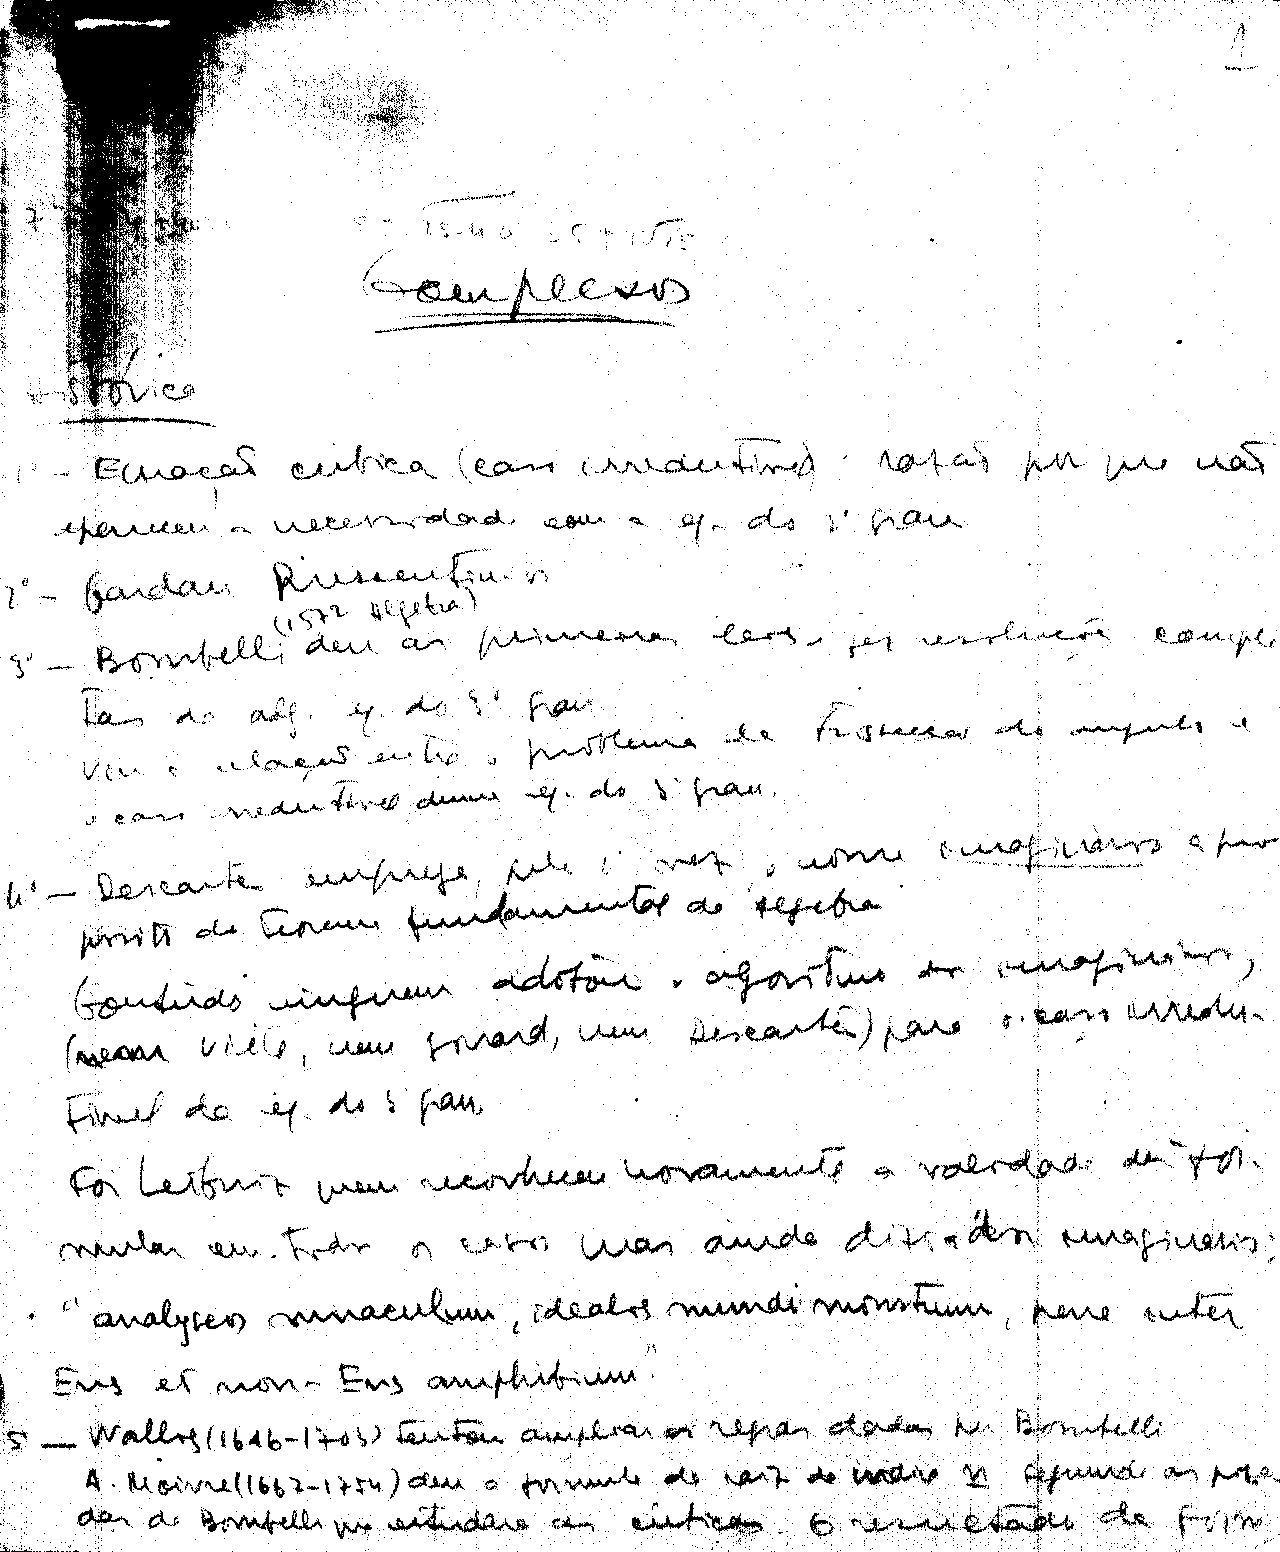 1
Complexos
Histórico
1º - Equação cúbica (caso irredutível) razão por que não
apareceu a necessidade com a eq. do 2º grau
2º - Cardan Renascentista
(1572 Algebra)
3º - Bombelli deu as primeiras leis resolução comple
tas da alg. eq. do 3º grau
Viu a relação entre o problema da trissecção do angulo e
o caso irredutivel duma eq. do 3º grau.
4º - Descartes emprega pela 1ª vez o nome imaginários a pro
posito do teorema fundamental da algebra
Contudo ninguem adotou o algoritmo dos imaginários,
(nem Viète, nem Girard, nem Descartes) para o caso irredu-
tivel da eq. do 3º grau
Foi Leibniz quem reconheceu novamente a validade das fór-
mulas em todos os casos mas ainda dizia dos imaginarios:
"analyseos miraculum, idealis mundi monstrum, pene inter
Ens et non-Ens amphibium".
5 - Wallis (1616-1703) tentou ampliar as regras dadas por Bombelli
A. Moivre (1667-1754) deu a formula da raiz de indice n segundo as pega
das de Bombelli que estudara as cúbicas. O resultado da form